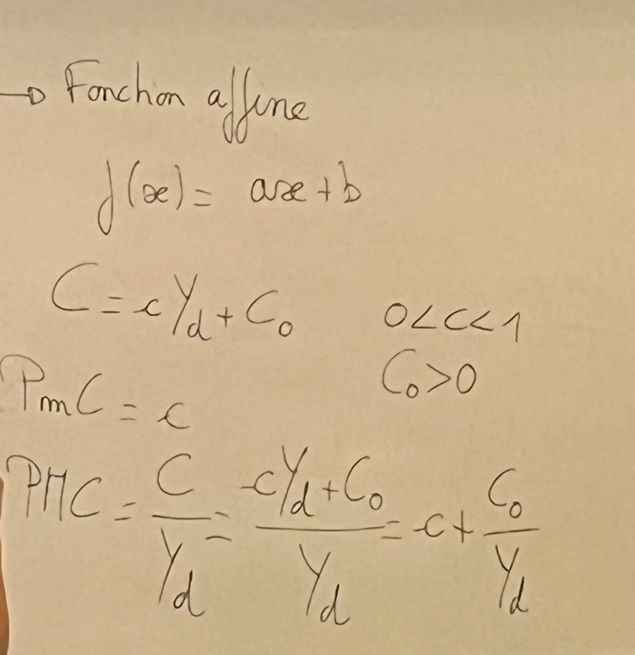 → Fonction affine
f(x) = ax + b
C = cYd + C₀ 0<c<1
C₀>0
PmC = c
PMC = C/Yd = (cYd + C₀)/Yd = c + C₀/Yd